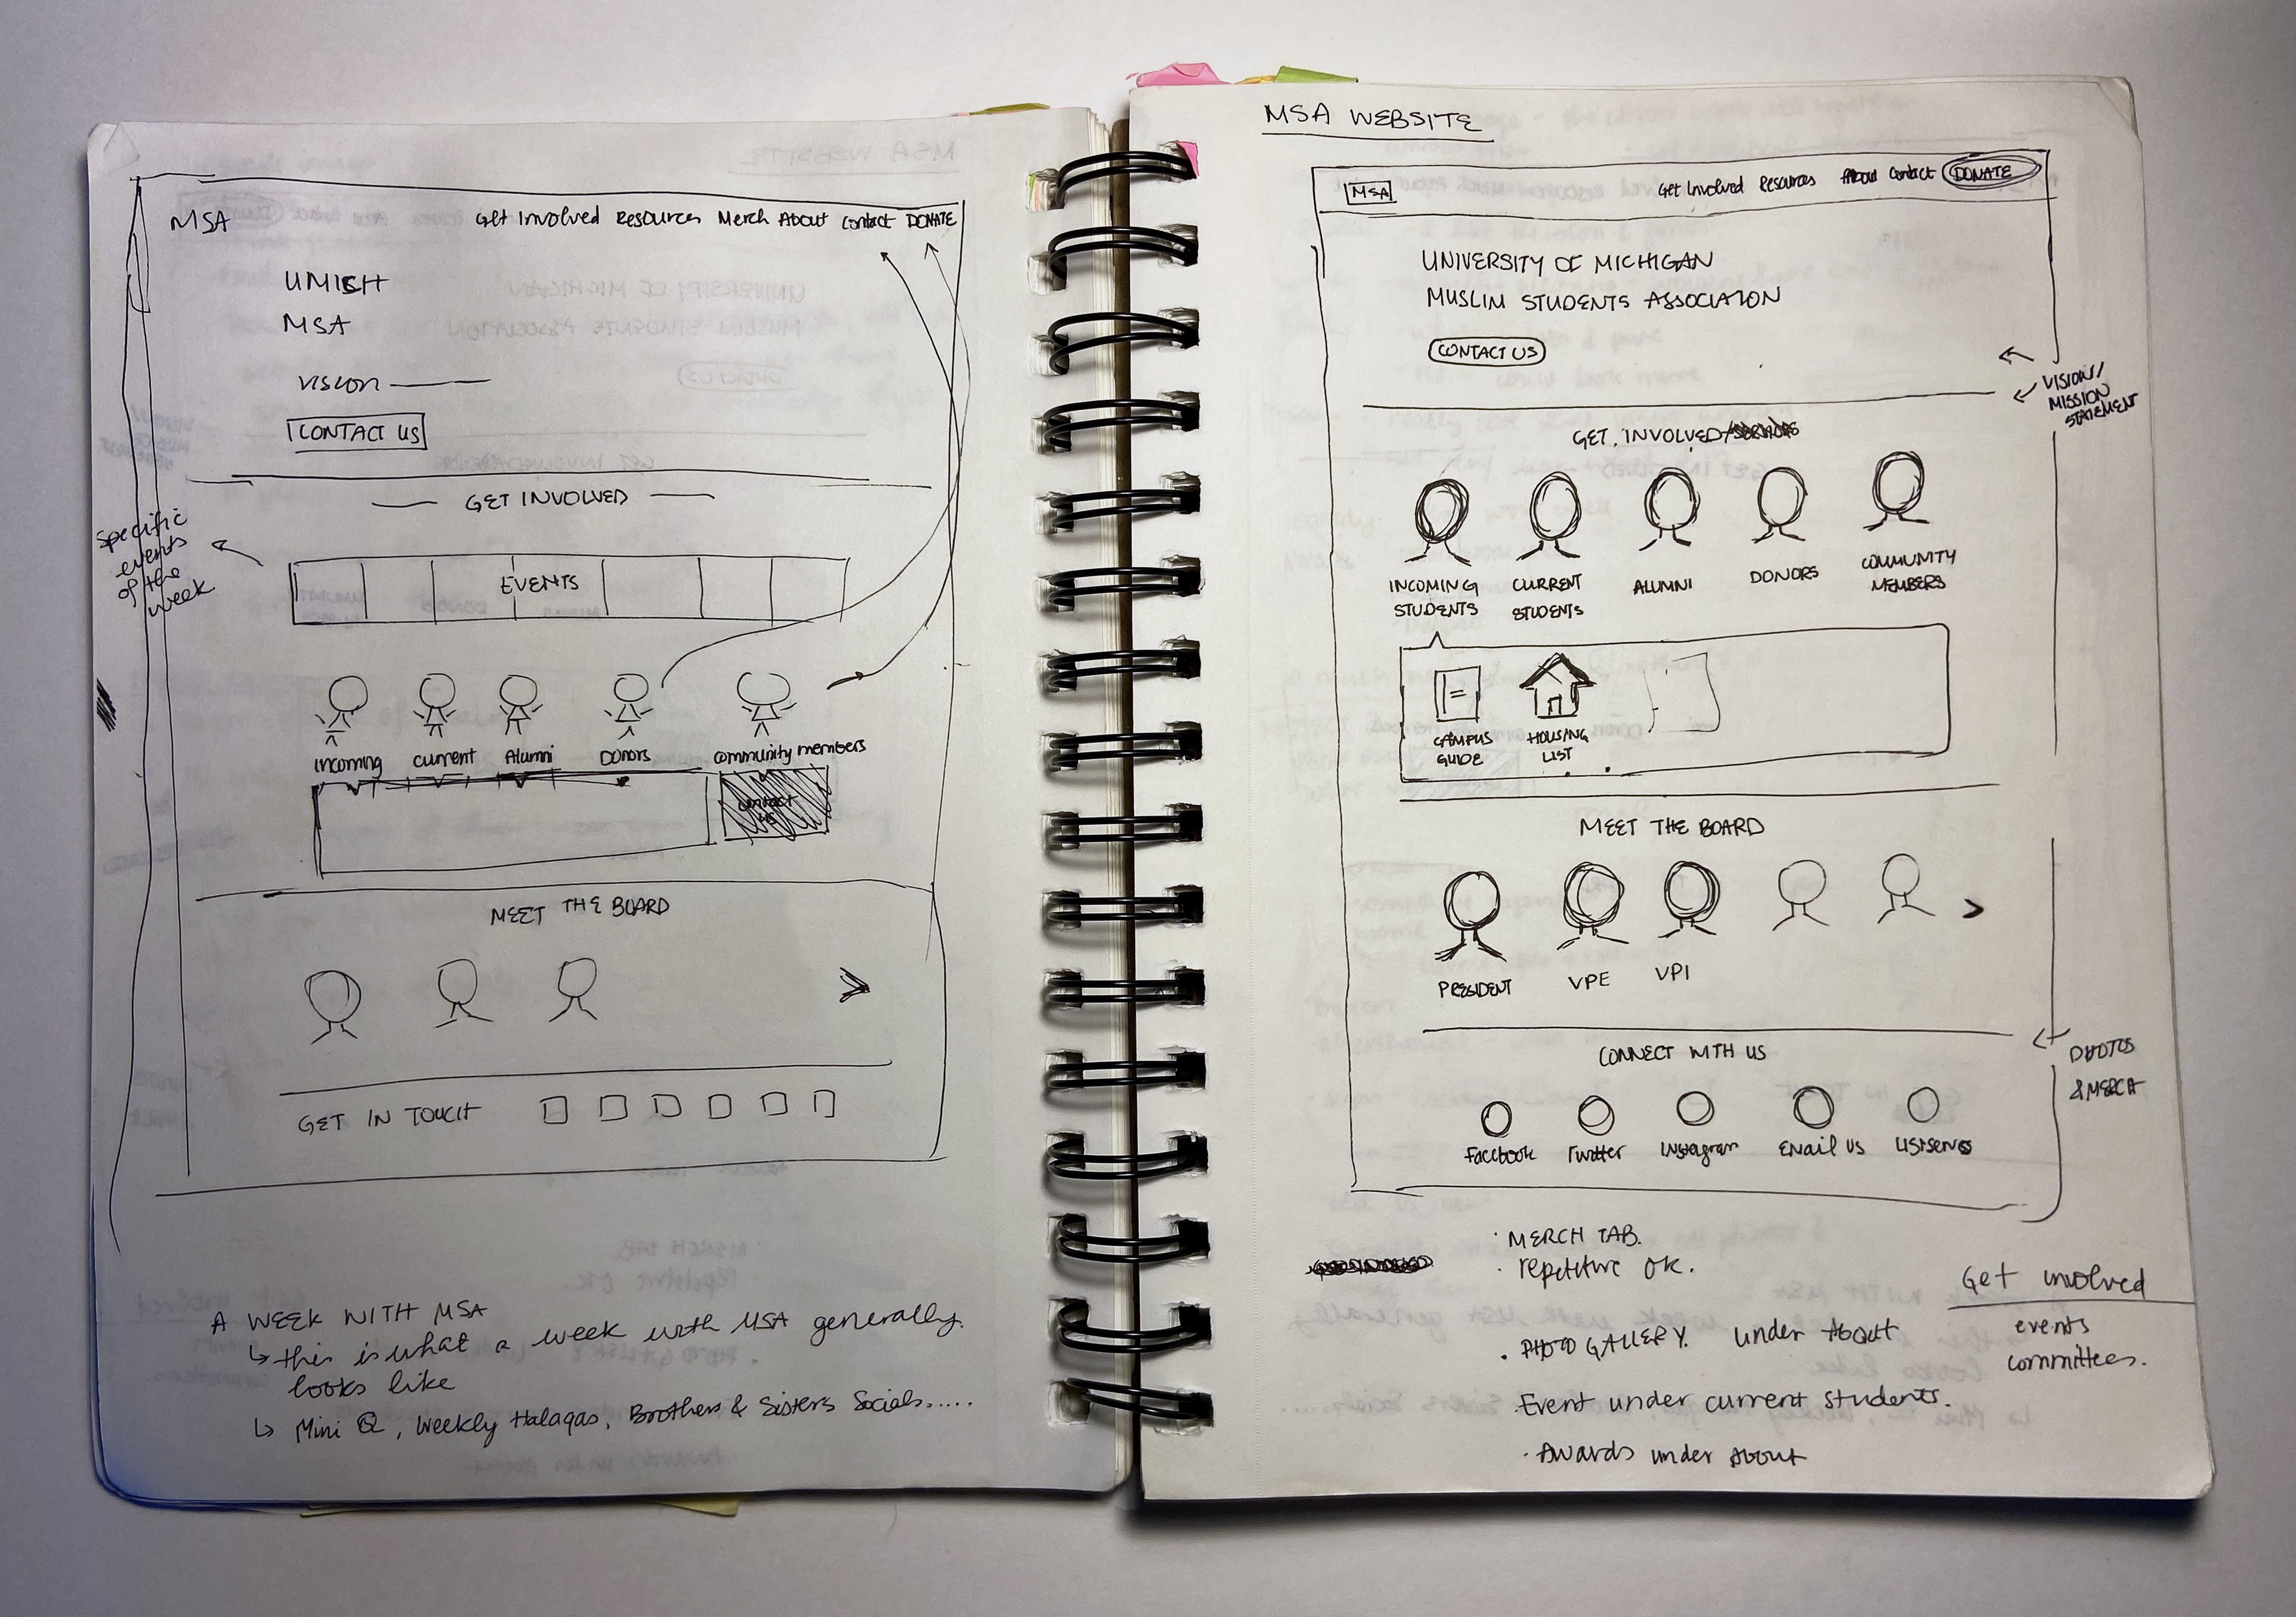 MSA
Get Involved Resources Merch About Contact DONATE
UMICH
MSA
VISION
CONTACT US
GET INVOLVED
Specific
events
of the
week
EVENTS
incoming current Alumni Donors community members
contact
us
MEET THE BOARD
>
GET IN TOUCH
A WEEK WITH MSA
↳ this is what a week with MSA generally
looks like
↳ Mini Q, Weekly Halaqas, Brothers & Sisters Socials.....
MSA WEBSITE
MSA
Get Involved Resources About Contact DONATE
UNIVERSITY OF MICHIGAN
MUSLIM STUDENTS ASSOCIATION
CONTACT US
VISION/
MISSION
STATEMENT
GET INVOLVED/SERVICES
INCOMING
STUDENTS
CURRENT
STUDENTS
ALUMNI
DONORS
COMMUNITY
MEMBERS
CAMPUS
GUIDE
HOUSING
LIST
MEET THE BOARD
>
PRESIDENT
VPE
VPI
PHOTOS
& MERCH
CONNECT WITH US
Facebook Twitter Instagram Email Us Listservs
· MERCH TAB.
· repetitive OK.
· PHOTO GALLERY. under About
Event under current students.
· Awards under About
Get involved
events
committees.